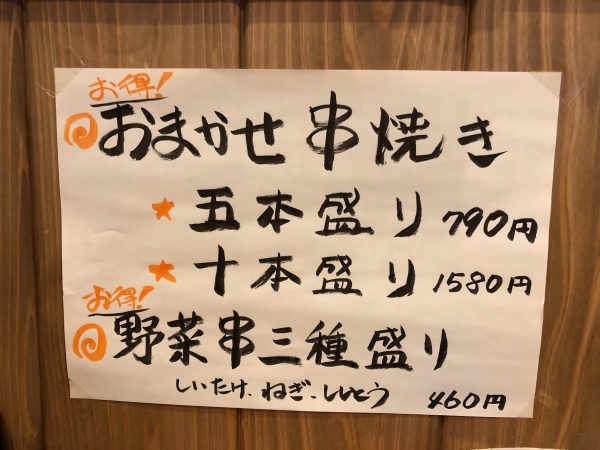 お得!
おまかせ串焼き
★五本盛り 790円
★十本盛り 1580円
お得!
野菜串三種盛り
しいたけ、ねぎ、ししとう 460円